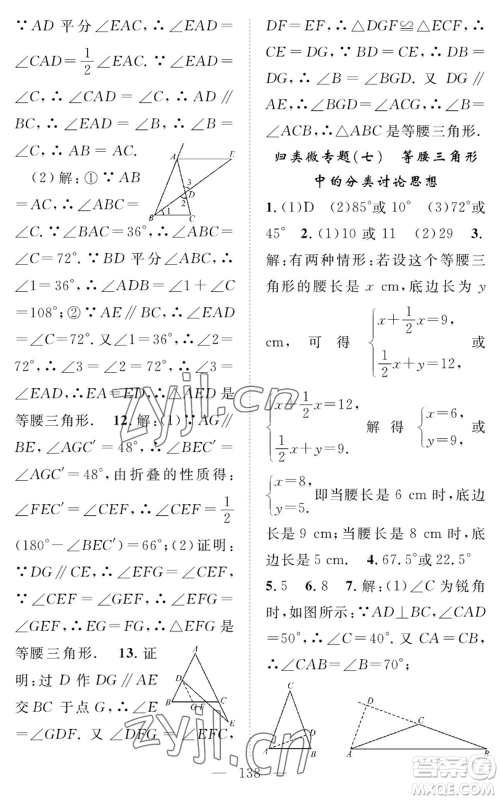 ∵AD 平分∠EAC. ∴∠EAD=
∠CAD=1/2∠EAC. ∵∠EAD=
∠C,∴∠CAD=∠C,∴AD∥
BC,∴∠EAD=∠B,∴∠B=
∠C,∴AB=AC.
(2)解:①∵AB=
AC,∠BAC=
36°,∴∠ABC=
∠C=72°. ∵BD 平分∠ABC,∴
∠1=36°,∴∠ADB=∠1+∠C=
108°;②∵AE∥BC,∴∠EAD=
∠C=72°. 又∠1=36°,∴∠2=
72°,∴∠3=∠2=72°,∴∠3=
∠EAD,∴EA=ED,∴△ADE 是
等腰三角形. 12.解:(1)∵AG∥
BE,∠AGC′=48°,∴∠BEC′=
∠AGC′=48°,由折叠的性质得:
∠FEC′=∠CEF,∴∠CEF=1/2
(180°-∠BEC′)=66°;(2)证明:
∵DG∥CE,∴∠EFG=∠CEF.
∵∠CEF=∠GEF,∴∠EFG=
∠GEF,∴FG=EG,∴△EFG 是
等腰三角形. 13.证
明:过 D 作 DG∥AE
交 BC 于点 G,∴∠E
=∠GDF. 又∵∠DFG=∠EFC,
DF=EF,∴△DGF≌△ECF,∴
GD=CE. ∵BD=CE,∴BD=
DG,∴∠B=∠BGD. 又 DG∥
AE,∴∠BGD=∠ACG,∴∠B=
∠ACB,∴△ABC 是等腰三角形.
归类微专题(七) 等腰三角形
中的分类讨论思想
1.(1)D (2)85°或 10° (3)72°或
45° 2.(1)10 或 11 (2)29 3.
解:有两种情形:若设这个等腰三角
形的腰长是 x cm,底边长为 y
cm,可得{x+1/2x=9,
1/2x+y=12,
或{x+1/2x=12,
1/2x+y=9.
解得{x=6,
y=9
或
{x=8,
y=5.
即当腰长是 6 cm 时,底边
长是 9 cm;当腰长是 8 cm 时,底
边长是 5 cm. 4.67.5°或 22.5°
5.5 6.8 7.解:(1)∠C 为锐角
时,如图所示:∵AD⊥BC,∠CAD
=50°,∴∠C=40°. 又 CA=CB,
∴∠CAB=∠B=70°;
A E
3
D
2
1
B C
A
D
B G F C
E
C
D
A B
D
C
A B
zyjl.cn
138